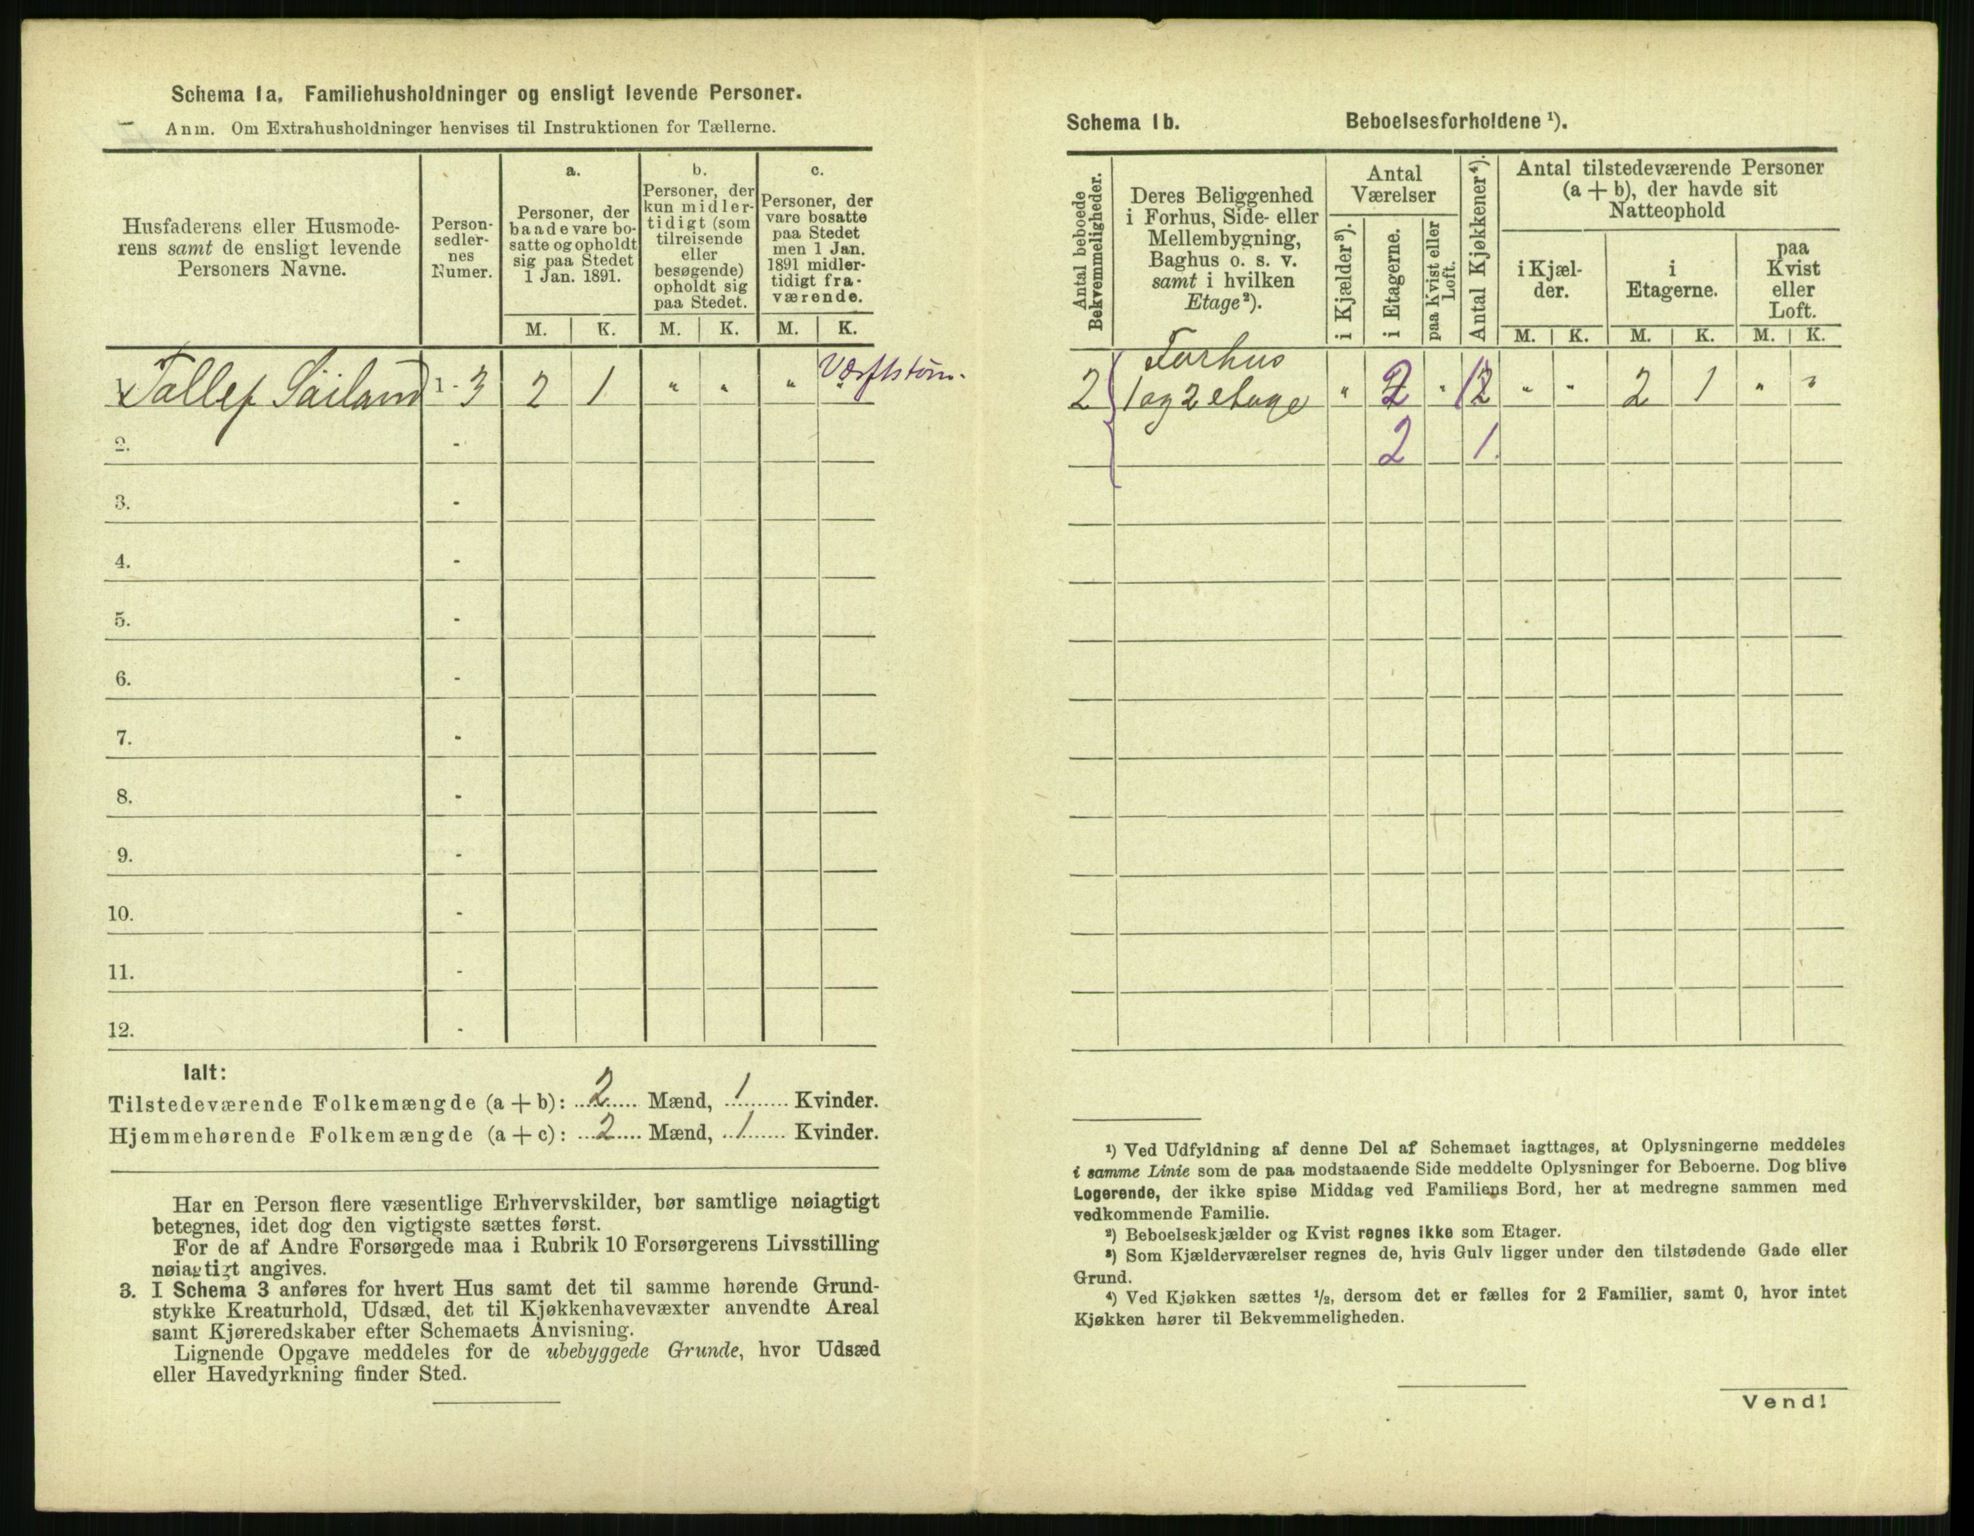 Schema 1a. Familiehusholdninger og ensligt levende Personer.
Anm. Om Extrahusholdninger henvises til Instruktionen for Tællerne.
Husfaderens eller Husmode-
rens samt de ensligt levende
Personers Navne.
Person-
sedler-
nes
Numer.
a.
Personer, der
baade vare bo-
satte og opholdt
sig paa Stedet
1 Jan. 1891.
b.
Personer, der
kun midler-
tidigt (som
tilreisende
eller
besøgende)
opholdt sig
paa Stedet.
c.
Personer, der
vare bosatte
paa Stedet
men 1 Jan.
1891 midler-
tidigt fra-
værende.
M. K. M. K. M. K.
Tallef Sàiland 1 - 3 2 1 " " "
2. -
3. -
4. -
5. -
6. -
7. -
8. -
9. -
10. -
11. -
12. -
Ialt:
Tilstedeværende Folkemængde (a + b): 2 Mænd, 1 Kvinder.
Hjemmehørende Folkemængde (a + c): 2 Mænd, 1 Kvinder.
Har en Person flere væsentlige Erhvervskilder, bør samtlige nøiagtigt
betegnes, idet dog den vigtigste sættes først.
For de af Andre Forsørgede maa i Rubrik 10 Forsørgerens Livsstilling
nøiagtigt angives.
3. I Schema 3 anføres for hvert Hus samt det til samme hørende Grund-
stykke Kreaturhold, Udsæd, det til Kjøkkenhavevæxter anvendte Areal
samt Kjøreredskaber efter Schemaets Anvisning.
Lignende Opgave meddeles for de ubebyggede Grunde, hvor Udsæd
eller Havedyrkning finder Sted.
Schema 1b. Beboelsesforholdene ¹).
Antal beboede
Bekvemmeligheder.
Deres Beliggenhed
i Forhus, Side- eller
Mellembygning,
Baghus o. s. v.
samt i hvilken
Etage²).
Antal
Værelser
i Kjælder³).
i Etagerne.
paa Kvist eller
Loft.
Antal Kjøkkener⁴).
Antal tilstedeværende Personer
(a + b), der havde sit
Natteophold
i Kjæl-
der.
i
Etagerne.
paa
Kvist
eller
Loft.
M. K. M. K. M. K.
Forhus
2 1 og 2 etage " 2 " 1 2 " " 2 1 " "
2 1
¹) Ved Udfyldning af denne Del af Schemaet iagttages, at Oplysningerne meddeles
i samme Linie som de paa modstaaende Side meddelte Oplysninger for Beboerne. Dog blive
Logerende, der ikke spise Middag ved Familiens Bord, her at medregne sammen med
vedkommende Familie.
²) Beboelseskjælder og Kvist regnes ikke som Etager.
³) Som Kjælderværelser regnes de, hvis Gulv ligger under den tilstødende Gade eller
Grund.
⁴) Ved Kjøkken sættes ½, dersom det er fælles for 2 Familier, samt 0, hvor intet
Kjøkken hører til Bekvemmeligheden.
Vend!